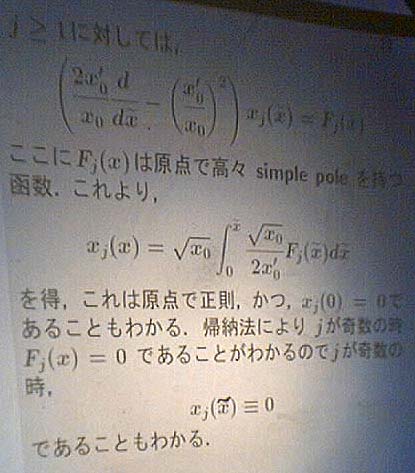 j ≥ 1に対しては,
(2x₀′/x₀ d/dx̃ − (x₀′/x₀)²) xⱼ(x̃) = Fⱼ(x̃)
ここにFⱼ(x)は原点で高々 simple pole を持つ
函数. これより,
xⱼ(x) = √x₀ ∫₀^x̃ √x₀/2x₀′ Fⱼ(x̃)dx̃
を得, これは原点で正則, かつ, xⱼ(0) = 0で
あることもわかる. 帰納法により jが奇数の時
Fⱼ(x) = 0 であることがわかるのでjが奇数の
時,
xⱼ(x̃) ≡ 0
であることもわかる.